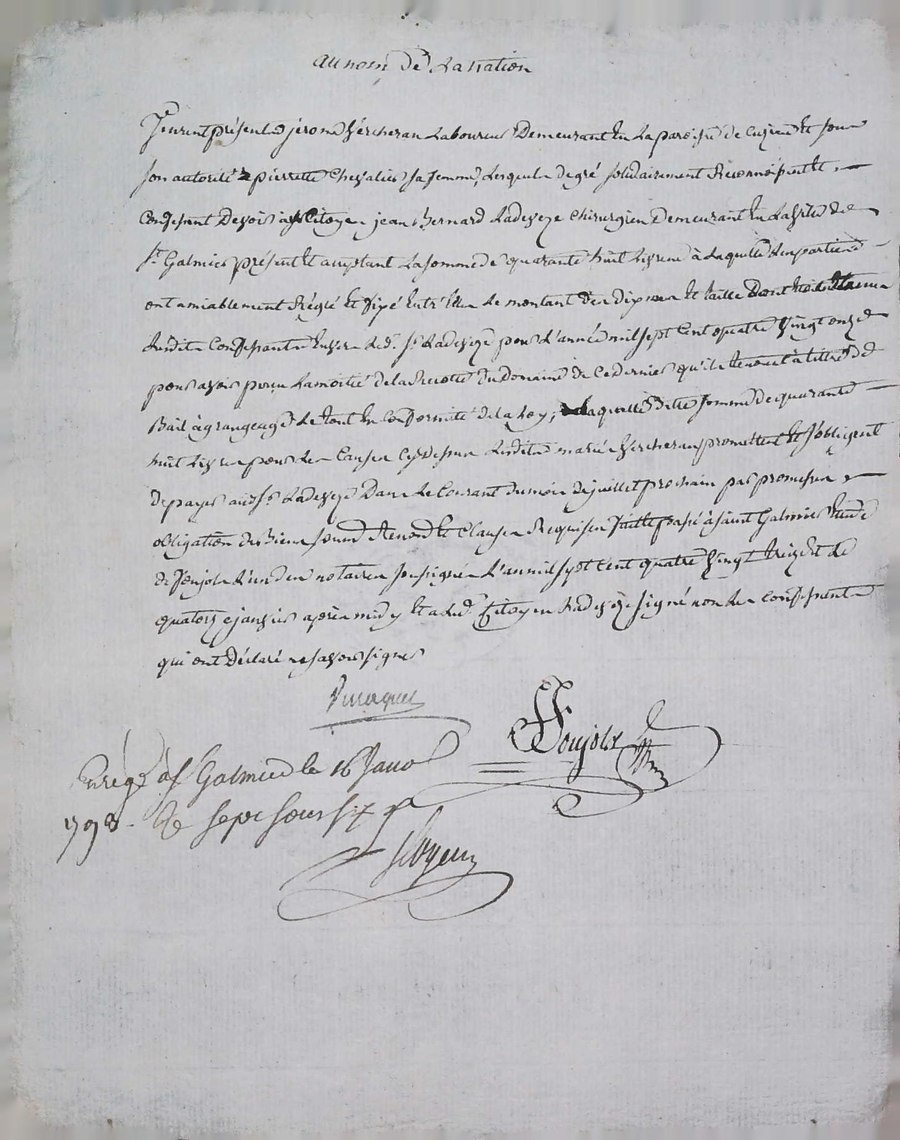 au nom de la nation
furent présents jerome Vercheran Laboureur Demeurant En La paroisse de Cuzieu Et sous
son autorité pierrette Chevalier sa femme, Lesquels de gré solidairement Reconnoissent Et
Confessent Devoir au Citoyen jean Bernard Ladeveze chirurgien Demeurant En La ville de
St. Galmier présent Et acceptant La somme de quarante huit Livres à Laquelle Les parties
ont amiablement Réglé Et fixé Entr'Elles Le montant Des dixmes Et taille Dont
Lesdits Confessants Envers Led. Sr. Ladeveze pour L'année mil sept Cent quatre Vingt onze
pour avoir perçu La moitié de la Recolte du Domaine de Ce dernier qu'ils tenoient à titre de
Bail à grangeage Le tout En Conformité de la Loy; Laquelle dette somme de quarante
huit Livres pour Les Causes Cy Dessus Lesdits mariés Vercheran promettent Et s'obligent
de payer audt. Sr. Ladeveze Dans Le Courant du mois de juillet prochain par promesses
obligation de Biens soumd. Renond. Et Clauses Requises fait Et passé à saint Galmier Etude
de Foujols L'un des notaires soussignés L'an mil sept Cent quatre Vingt treize Et Le
quatorze janvier après midy Et a Led. Citoyen Ladeveze signé non Les Confessants
qui ont Déclaré ne savoir signer
Foujols
Enregé. à St Galmier le 16 Janv
1793. sept sous six